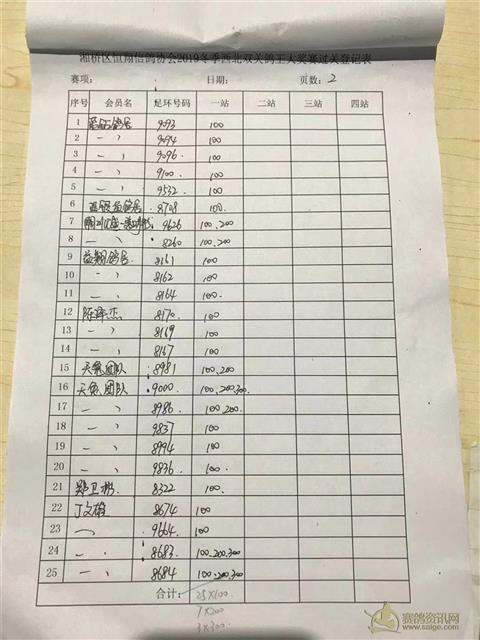 湘桥区恒翔信鸽协会2019冬季西北双关鸽王大奖赛过关登记表
赛项: 日期: 页数: 2
序号 会员名 足环号码 一站 二站 三站 四站
1 鸽舍 9093 100
2 一 ヽ 9094 100
3 一 ヽ 9096. 100.
4 一 ヽ 9100. 100
5 一 ヽ 9532 100.
6 鸽舍 8708 100.
7 9626 100.200
8 一 ヽ 8260 100.200
9 益翔鸽舍. 8161 100
10 一 ヽ 8162 100
11 一 ヽ 8164 100.
12 陈泽杰 8170. 100
13 一 ヽ 8169 100
14 一 ヽ 8167 100
15 天龍团队 8981 100.200
16 天龍团队 9000 100.200.300
17 一 ヽ 8986. 100.200.
18 一 ヽ 9837 100
19 一 ヽ 8994 100
20 一 ヽ 9836. 100
21 郑卫彬. 8322 100
22 丁文雄 8674 100
23 一ヽ 9664. 100
24 一 . 8683. 100.200.300
25 一 、 8684 100.200.300
合计: 25×100.
7×200
3×300.
赛鸽资讯网
www.saige.com